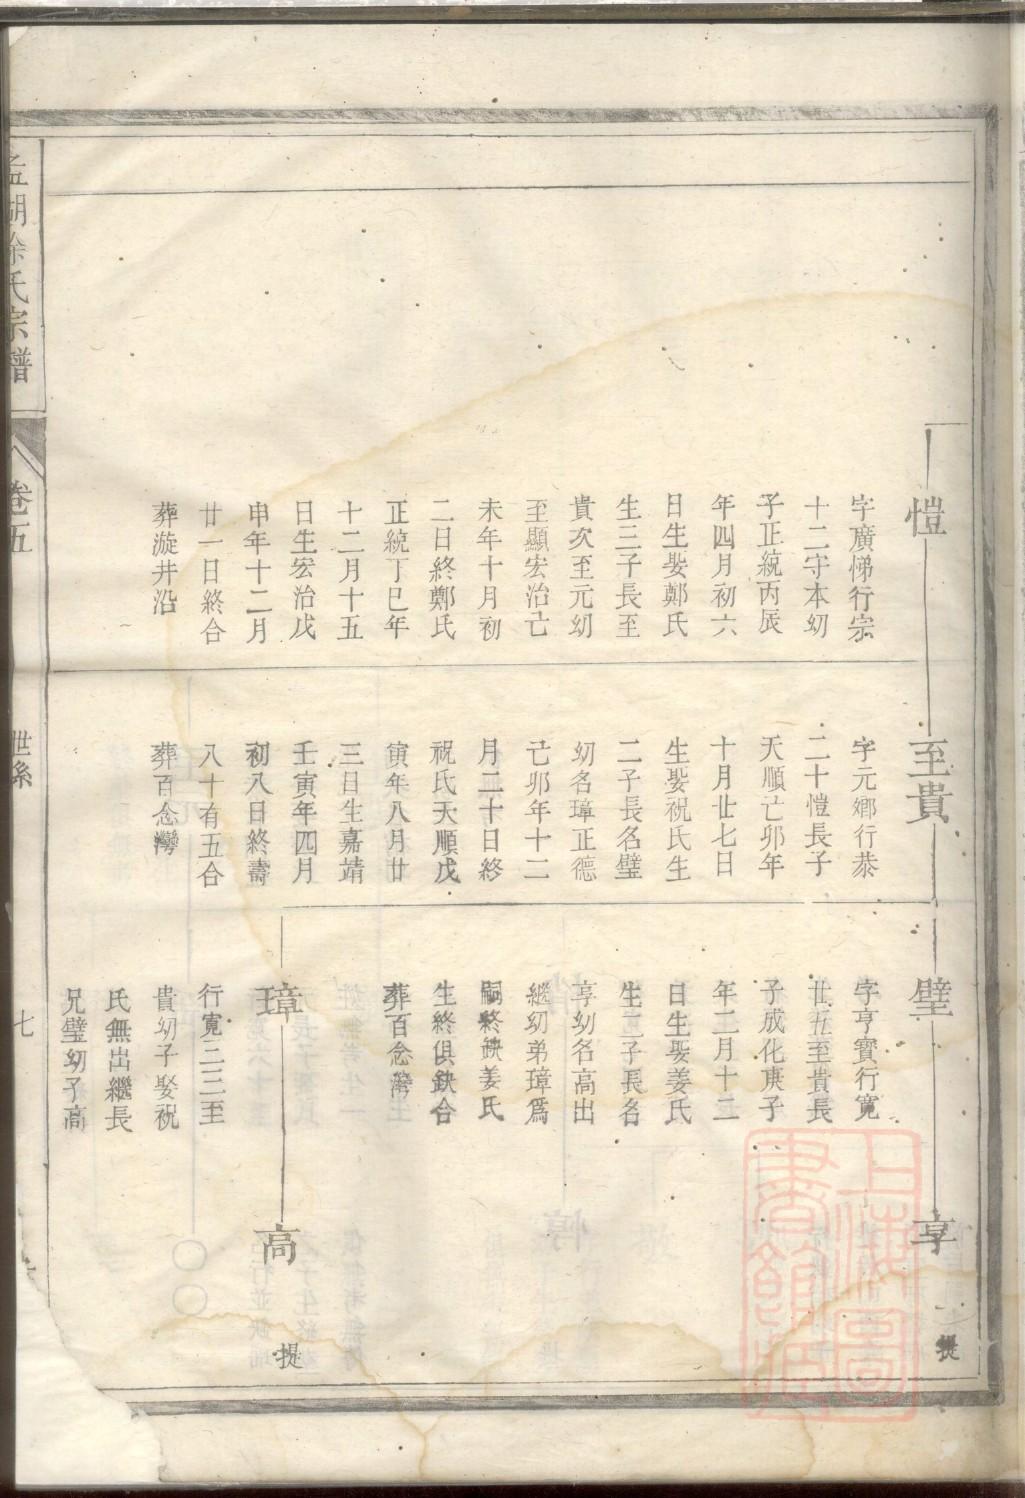 愷
字廣悌行宗
十二守本幼
子正統丙辰
年四月初六
日生娶鄭氏
生三子長至
貴次至元幼
至顯宏治己
未年十月初
二日終鄭氏
正統丁巳年
十二月十五
日生宏治戊
申年十二月
廿一日終合
葬漩井沿
至貴
字元鄉行恭
二十愷長子
天順己卯年
十月廿七日
生娶祝氏生
二子長名璧
幼名璋正德
己卯年十二
月二十日終
祝氏天順戊
寅年八月廿
三日生嘉靖
壬寅年四月
初八日終壽
八十有五合
葬百念灣
璧
字亨寶行寬
廿五至貴長
子成化庚子
年二月十二
日生娶姜氏
生二子長名
享幼名高出
繼幼弟璋爲
嗣終缺姜氏
生終俱缺合
葬百念灣
享
提
璋
行寬三三至
貴幼子娶祝
氏無出繼長
兄璧幼子高
高
提
湖徐氏宗譜
卷五
世系
七
上海圖書館藏